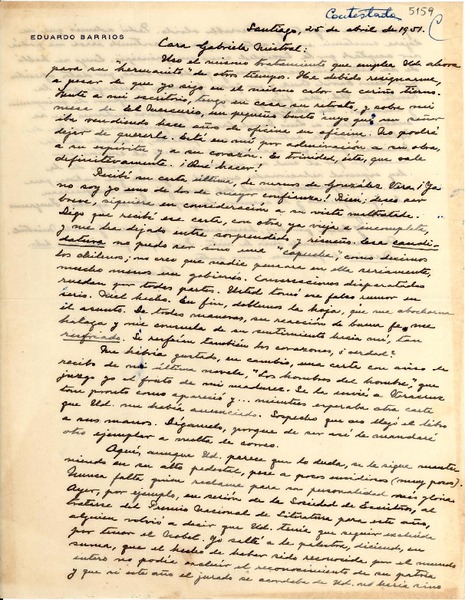 Contestada
5159
C
EDUARDO BARRIOS
Santiago, 25 de abril de 1951.
Cara Gabriela Mistral:
Uso el mismo tratamiento que emplea Ud. ahora
para su "hermanito" de otros tiempos. He debido resignarme,
a pesar de que yo sigo en el mismo calor de cariño tierno.
Junto a mi escritorio, tengo en casa su retrato, y sobre mi
mesa de El Mercurio, un pequeño busto suyo que un señor
iba vendiendo hace años de oficina en oficina. No podré
dejar de quererla. Está en mí por admiración a su obra,
a su espíritu y a su corazón. La trinidad, ésta, que vale
definitivamente. ¡Qué hacer!
Recibí su carta última, de manos de González Vera. ¡Ya
no soy yo uno de los de mayor confianza! Bien; deseo ser
breve, siquiera en consideración a su vista maltratada.
Digo que recibí esa carta, con otra ya vieja e incompleta,
y me ha dejado entre sorprendido y risueño. Esa candi-
datura no pudo ser sino una "capucha", como decimos
los chilenos; no creo que nadie pensara en ella seriamente,
mucho menos un gobierno. Conversaciones disparatadas
ruedan por todas partes. Usted tomó ese falso rumor en
serio. Mal hecho. En fin, doblemos la hoja, que me abochorna
el asunto. De todas maneras, su reacción de buena fe me
halaga y me consuela de su sentimiento hacia mí, tan
resfriado. Se resfrían también los corazones, ¿verdad?
Me habría gustado, en cambio, una carta con aviso de
recibo de mi última novela, "Los hombres del hombre", que
juzgo yo el fruto de mi madurez. Se la envié a Veracruz
tan pronto como apareció y... mientras esperaba otra carta
que Ud. me había anunciado. Sospecho que no llegó el libro
a sus manos. Dígamelo, porque de ser así le mandaré
otro ejemplar a vuelta de correo.
Aquí, aunque Ud. parece que lo duda, se la sigue mante-
niendo en su alto pedestal, pese a pocos envidiosos (muy pocos).
Nunca falta quien reclame para su personalidad más gloria.
Ayer, por ejemplo, en sesión de la Sociedad de Escritores, al
tratarse del Premio Nacional de Literatura para este año,
alguien volvió a decir que Ud. tenía que seguir excluida
por tener el Nobel. Yo salté a la palestra, diciendo, en
suma, que el hecho de haber sido reconocida por el mundo
entero no podía excluir el reconocimiento de su patria
y que si este año el jurado se acordaba de Ud. no haría sino